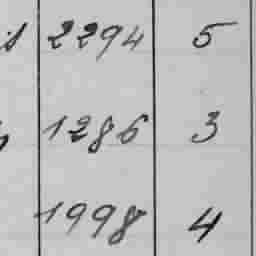 2294 5
1286 3
1998 4